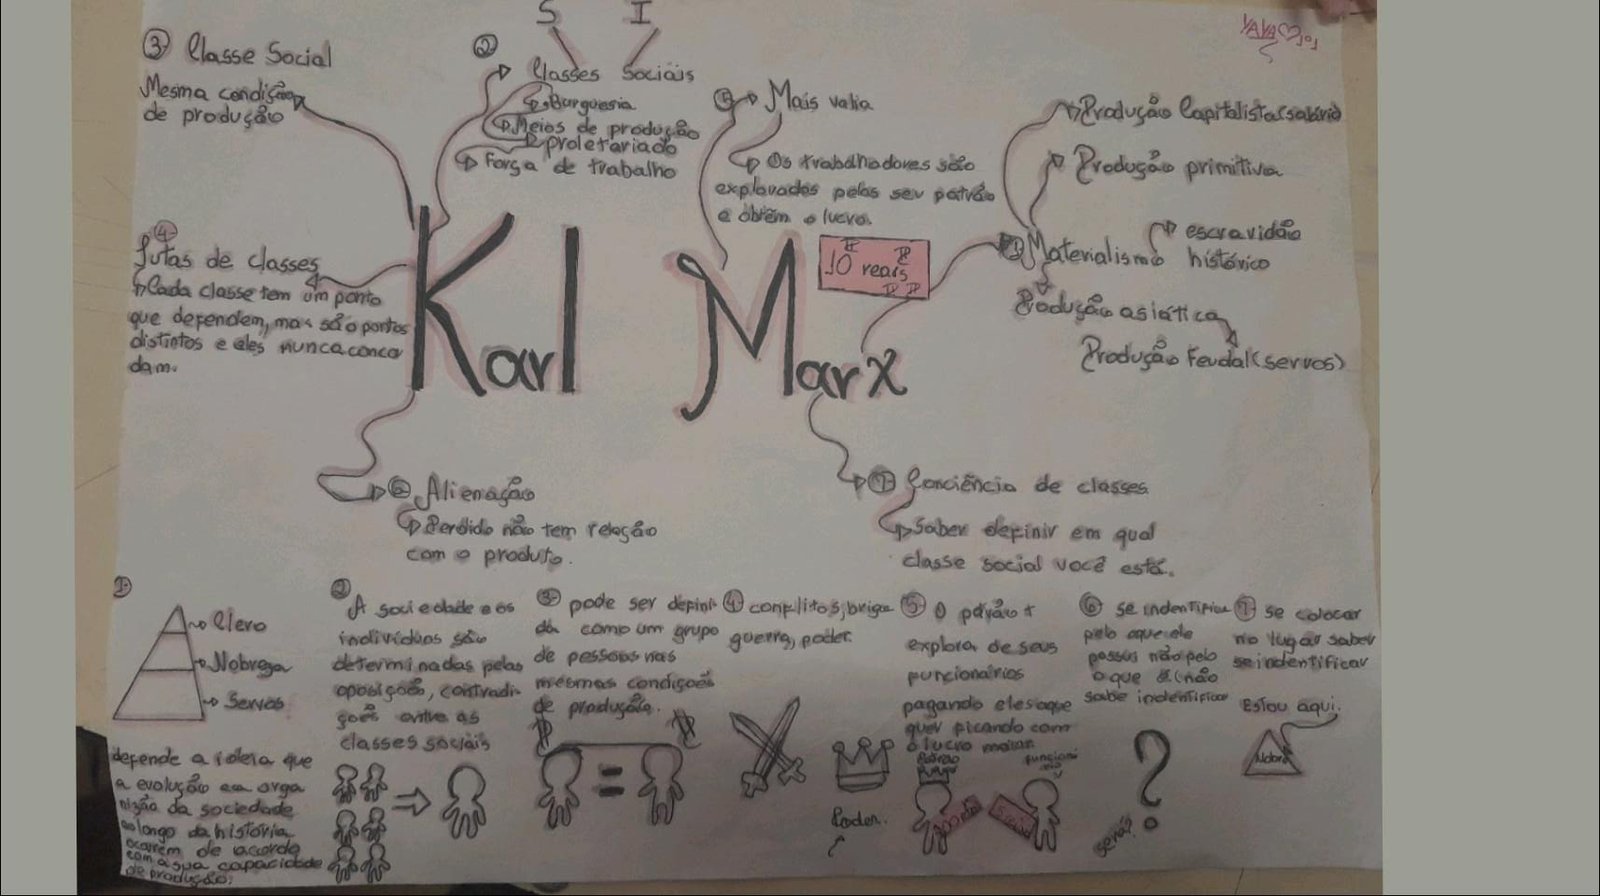 S I
YAYA
③ Classe Social
Mesma condição
de produção
②
Classes Sociais
Burguesia
Meios de produção
proletariado
Força de trabalho
⑤ Mais valia
Os trabalhadores são
explorados pelos seu patrão
e obtêm o lucro.
Produção Capitalista(salário)
Produção primitiva
escravidão
① Materialismo histórico
Produção asiática
Produção Feudal(servos)
④
lutas de classes
Cada classe tem um ponto
que defendem, mas são pontos
distintos e eles nunca conco
dam.
Karl Marx
10 reais
⑥ Alienação
Perdido não tem relação
com o produto.
⑦ Conciência de classes
Saber definir em qual
classe social você está.
①
Clero
Nobreza
Servos
defende a ideia que
a evolução e a orga
nizão da sociedade
ao longo da história
ocorrem de acordo
com a sua capacidade
de produção.
②
A sociedade e os
indivíduos são
determinadas pelas
oposição, contradi-
ções entre as
classes sociais
③ pode ser defini
da como um grupo
de pessoas nas
mesmas condições
de produção.
$ $
=
④ conflitos, briga
guerra, poder.
Poder.
⑤ O patrão +
explora de seus
funcionários
pagando eles oque
quer ficando com
o lucro maior
Patrão
⑥ se indentifica
pelo que ele
possui não pelo
o que é (não
sabe indentificar
?
⑦ se colocar
no lugar saber
se indentificar
Estou aqui.